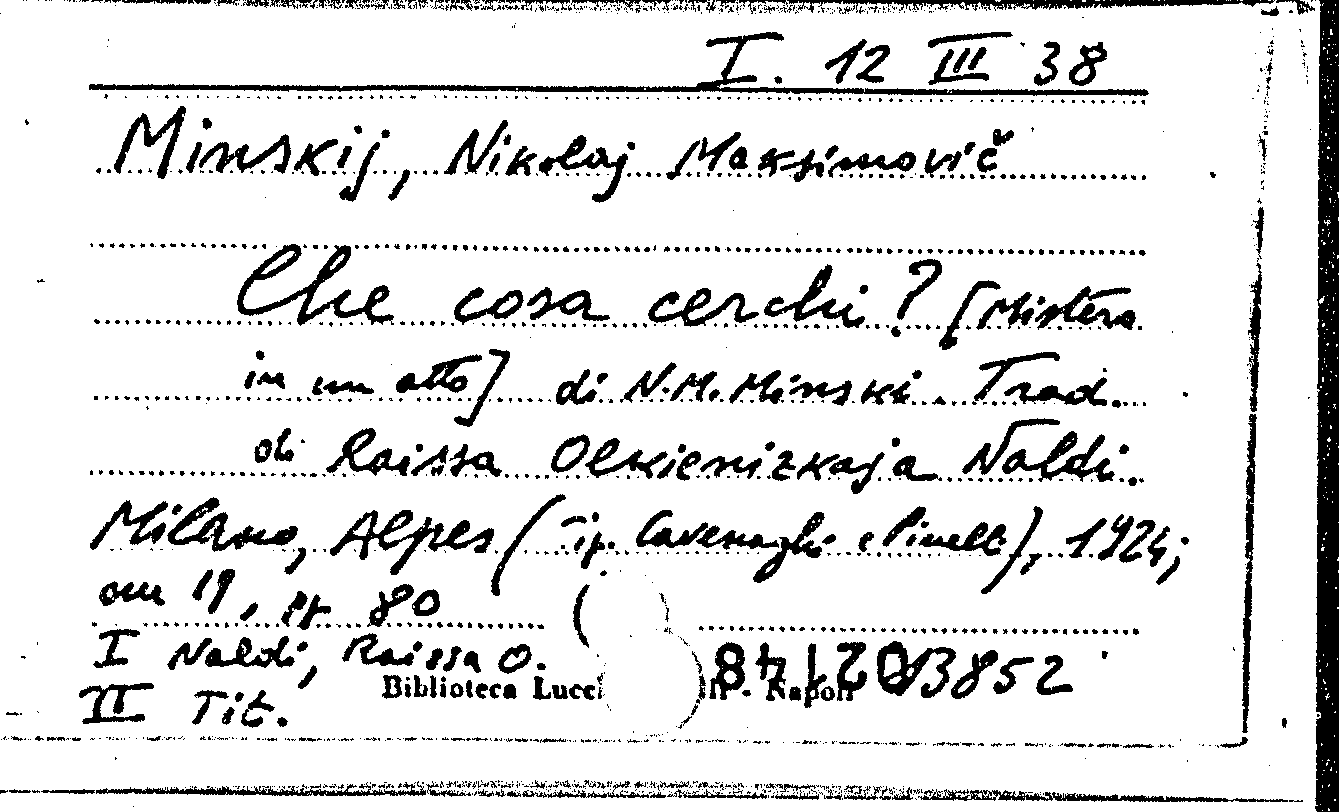 I. 12 III 38
Minskij, Nikolaj Maksimovič
Che cosa cerchi? [Mistero
in un atto] di N.M. Minski. Trad.
di Raissa Olkienizkaja Naldi.
Milano, Alpes (Tip. Cavenaghi e Pinelli), 1924;
cm 19, pp 80
I Naldi, Raissa O.
Biblioteca Lucc - Napoli 3852
II Tit.